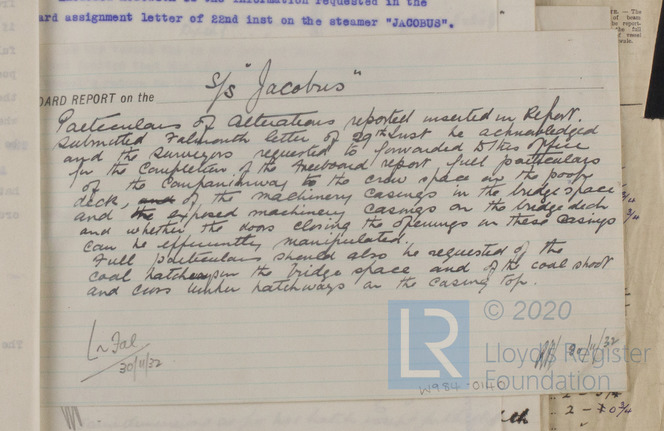 information requested in the
ard assignment letter of 22nd inst on the steamer "JACOBUS".
OARD REPORT on the S/S "Jacobus"
Particulars of Alterations reported inserted in Report.
Submitted Falmouth letter of 29th Inst be acknowledged
and the Surveyors requested to forwarded to this office
for the completion of the Freeboard report full particulars
of the companionway to the crew space on the poop
deck, and of the machinery casings in the bridge space
and the exposed machinery casings on the bridge deck
and whether the doors closing the openings in these casings
can be efficiently manipulated.
Full particulars should also be requested of the
coal hatches in the bridge space and of the coal shoot
and cross bunker hatchways on the casing top.
Lr Fal
30/11/32
30/11/32
LR
© 2020
Lloyd's Register
Foundation
W984-0140
The